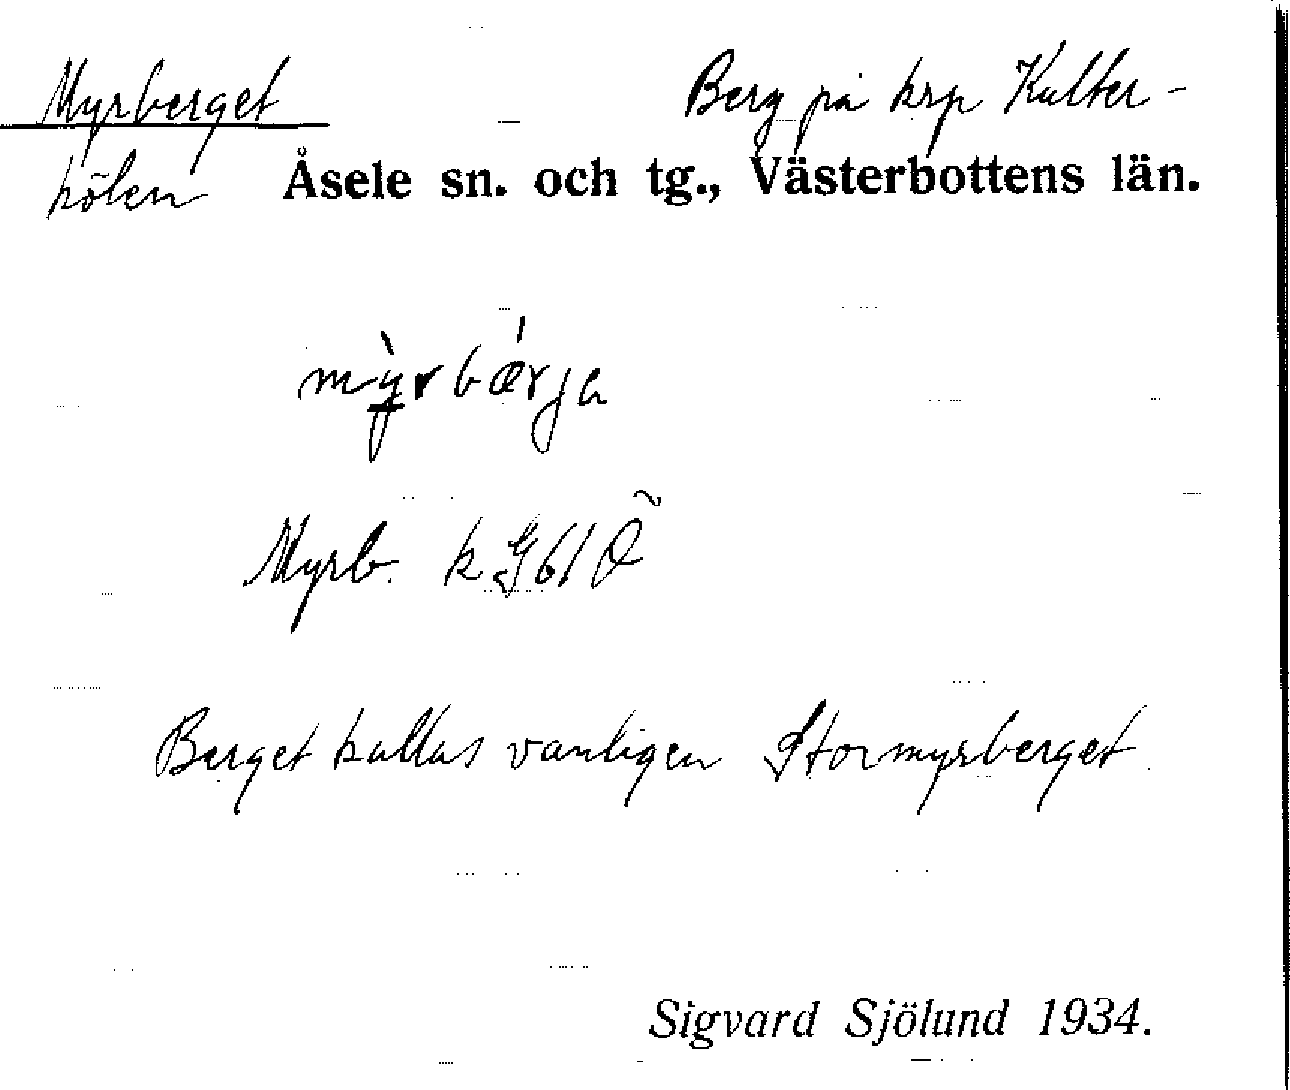 Myrberget Berg på krp Kulter-
hölen Åsele sn. och tg., Västerbottens län.
mỳrbǽrja
Myrb. k G61Ö
Berget kallas vanligen Stormyrberget
Sigvard Sjölund 1934.